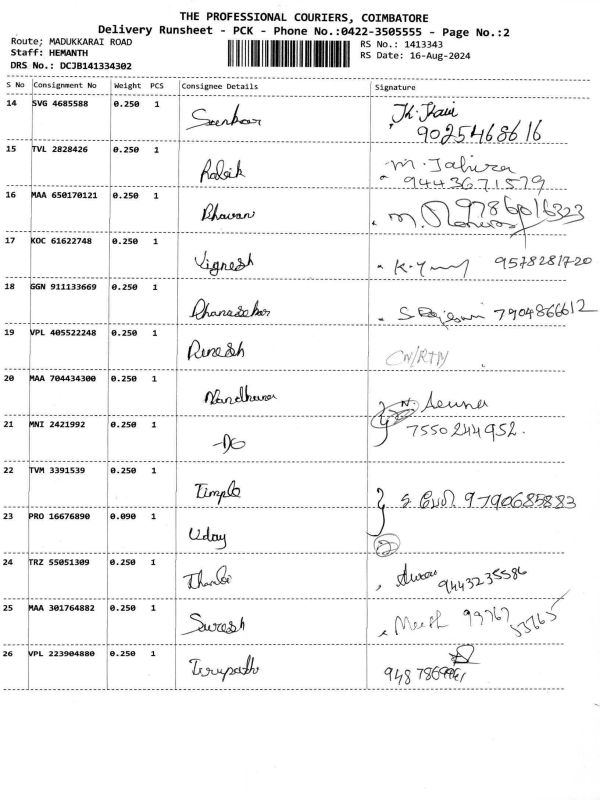 THE PROFESSIONAL COURIERS, COIMBATORE
Delivery Runsheet - PCK - Phone No.:0422-3505555 - Page No.:2
Route; MADUKKARAI ROAD
Staff: HEMANTH
DRS No.: DCJB141334302
RS No.: 1413343
RS Date: 16-Aug-2024
S No Consignment No Weight PCS Consignee Details Signature
14 SVG 4685588 0.250 1
9025468616
15 TVL 2828426 0.250 1 Rafeik M. Tahira
9443671579
16 MAA 650170121 0.250 1 Dhavan 9786016323
17 KOC 61622748 0.250 1 Vignesh 9578281720
18 GGN 911133669 0.250 1 Dhanasekar 7904866612
19 VPL 405522248 0.250 1 Dinesh CN/RTN
20 MAA 704434300 0.250 1 Nandhana
21 MNI 2421992 0.250 1 DG 7550244952.
22 TVM 3391539 0.250 1 Timple 9790685883
23 PRO 16676890 0.090 1 Uday 2
24 TRZ 55051309 0.250 1 9443235586
25 MAA 301764882 0.250 1 Suresh 99767
53765
26 VPL 223904880 0.250 1 Tirupathi